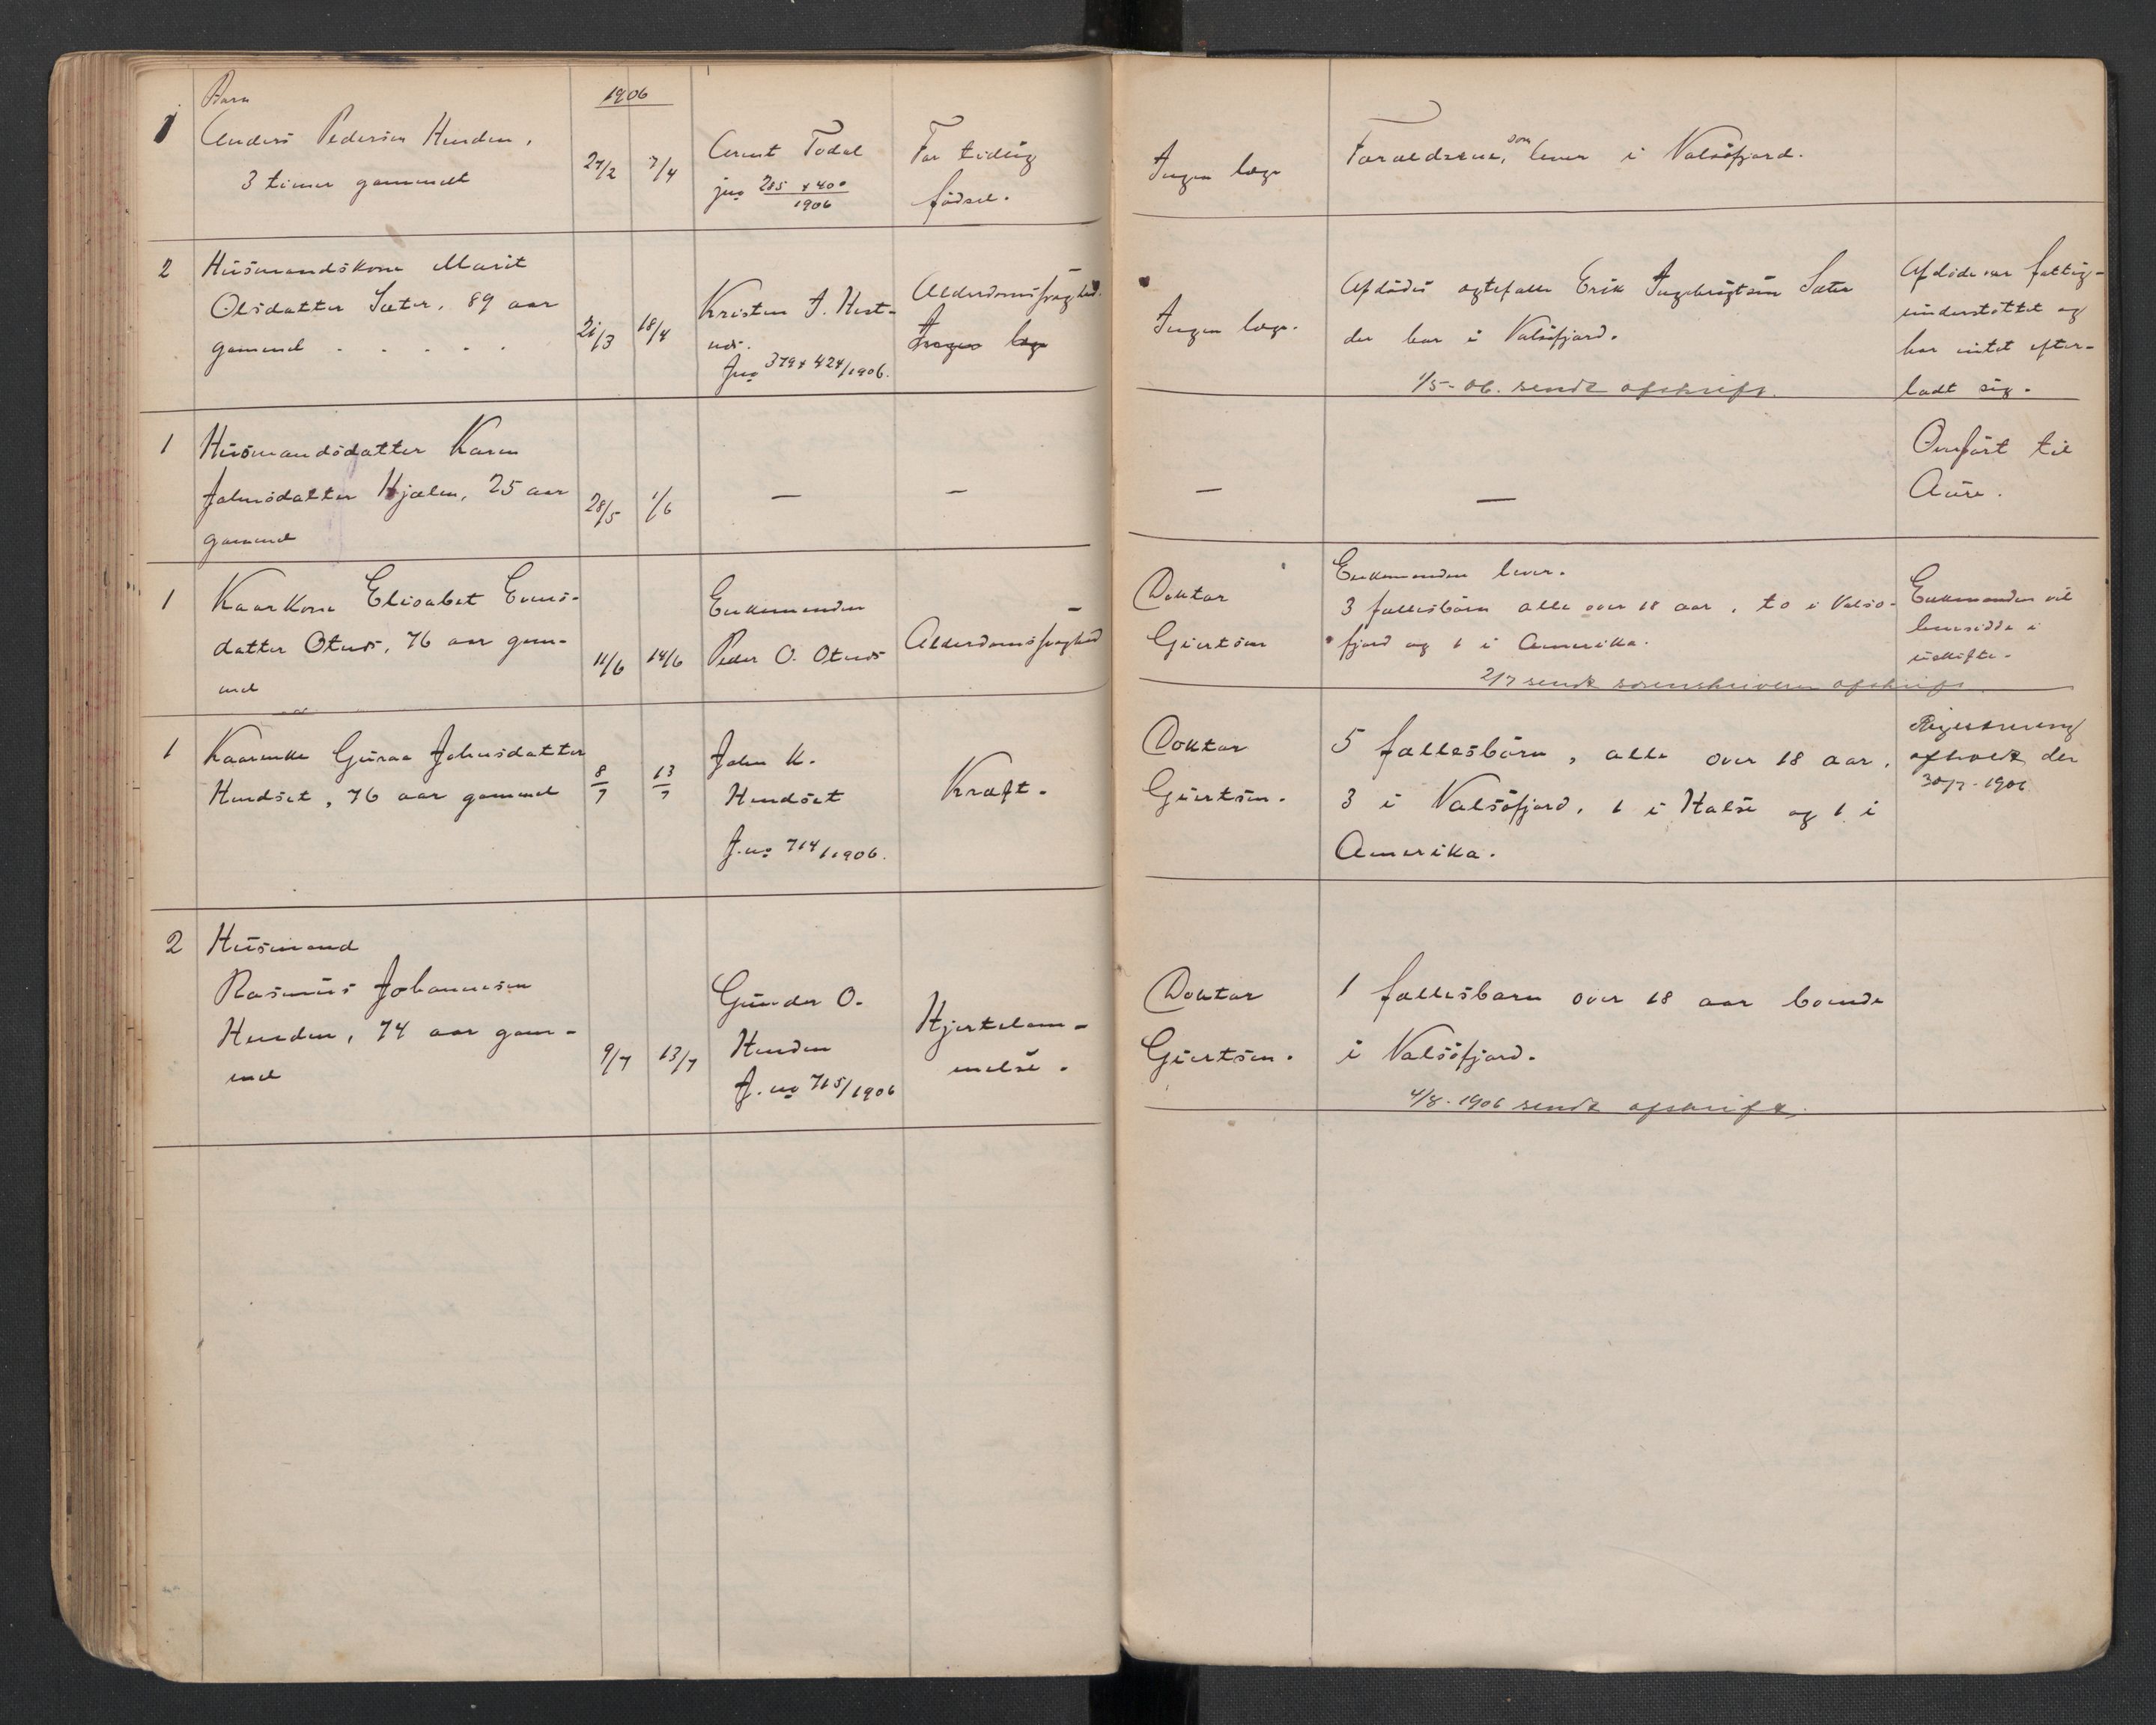 1906
1
Barn
Anders Pedersen Henden,
3 timer gammelt
27/2
7/4
Arnt Todal
jno 285 & 400
1906
For tidlig
födsel.
Ingen læge
Foræeldrene, som lever i Valsöfjord.
2
Husmandskone Marit
Olsdatter Sæter, 89 aar
gammel . . . . .
21/3
18/4
Kristen A. Hest-
nes.
Jno 379 & 424/1906.
Alderdomssvaghed.
Ingen læge
Ingen læge.
Afdödes ægtefælle Erik Ingebrigtsen Sæter
der bor i Valsöfjord.
1/5-06. sendt afskrift.
Afdöde var fattig-
understöttet og
har intet efter-
ladt sig.
1
Husmandsdatter Karen
Johnsdatter Hjælm, 25 aar
gammel
28/5
1/6
—
—
—
—
Overfört til
Aure.
1
Kaarkone Elisabet Evens-
datter Otnes, 76 aar gam-
mel
11/6
14/6
Enkemanden
Peder O. Otnes
Alderdomssvaghed
Doktor
Giertsen
Enkemanden lever.
3 fællesbörn alle over 18 aar, to i Valsö-
fjord og 1 i Amerika.
2/7 sendt sorenskriveren afskrift.
Enkemanden vil
hensidde i
uskifte.
1
Kaarenke Guraa Johnsdatter
Hendset, 76 aar gammel
8/7
13/7
John K.
Hendset
J.no 714/1906.
Kræft.
Doktor
Giertsen.
5 fællesbörn, alle over 18 aar,
3 i Valsöfjord, 1 i Halse og 1 i
Amerika.
Registrering
afholdt den
30/7-1906.
2
Husmand
Rasmus Johannesen
Henden, 74 aar gam-
mel
9/7
13/7
Gunder O.
Henden
J.no 715/1906
Hjertelam-
melse.
Doktor
Giertsen.
1 fællesbarn over 18 aar boende
i Valsöfjord.
4/8-1906 sendt afskrift.